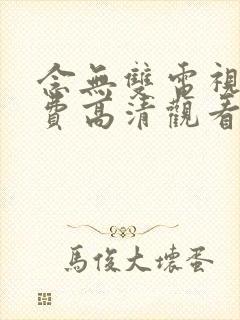 念無雙電視
費高清觀看
馬俊大壞蛋